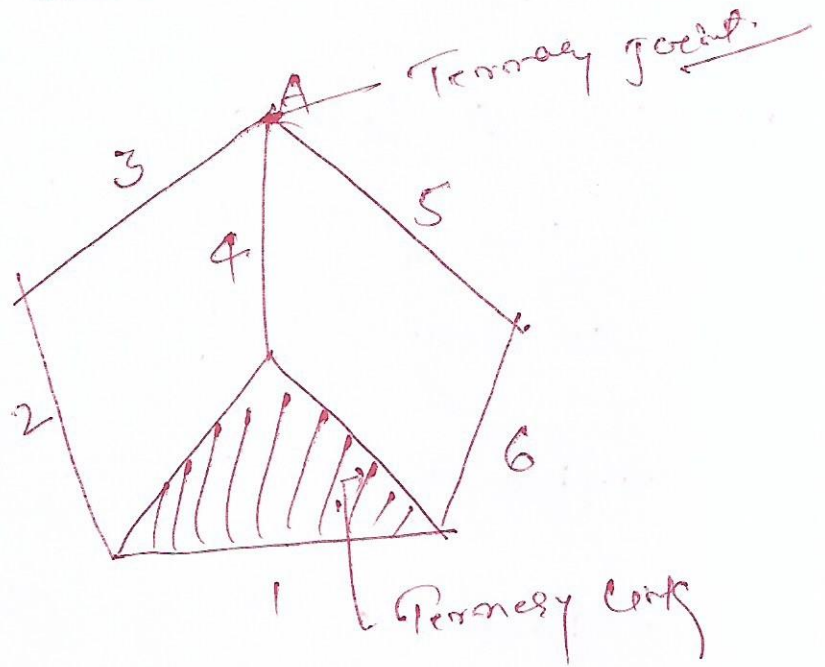 A
Ternary Joint.
3
5
4
2
6
1
Ternary link